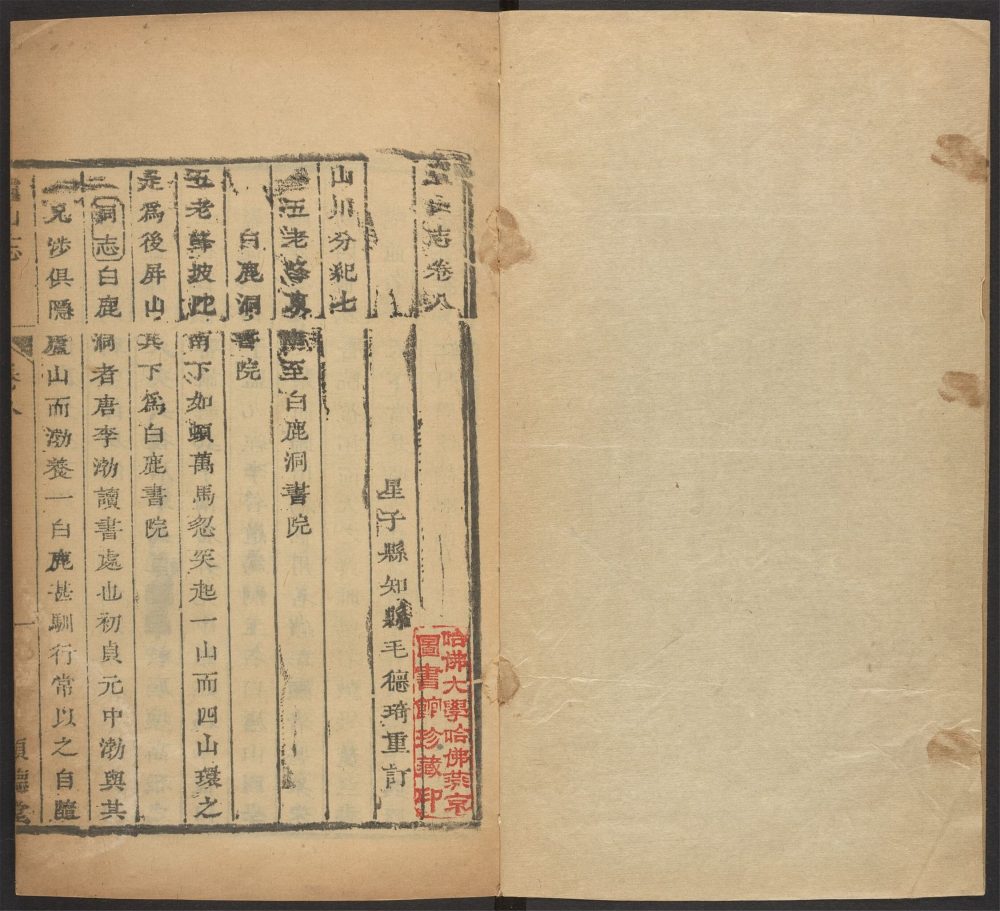 廬山志卷八
星子縣知縣毛德琦重訂
山川分紀七
五老峰東南至白鹿洞書院
白鹿洞書院
五老峰坡陀南下如頓萬馬忽突起一山而四山環之
是爲後屏山其下爲白鹿書院
洞志白鹿洞者唐李渤讀書處也初貞元中渤與其
兄涉俱隱廬山而渤養一白鹿甚馴行常以之自隨
廬山志
卷八
一
順德堂
哈佛大學哈佛燕京
圖書館珍藏印